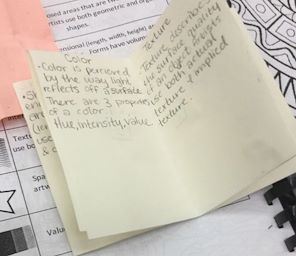 osed areas that are
tists use both geometric and org
shapes.
ensional (length, width, height) a
Forms have volum
Color
-Color is percieved
by the way light
reflects off a surface.
There are 3 properties
of a color:
Hue, intensity, value
Texture
Texture describes
the surface quality
of an object. Artists
use both actual
texture & implied
texture.
Textu
use bo
Spa
artw
Valu